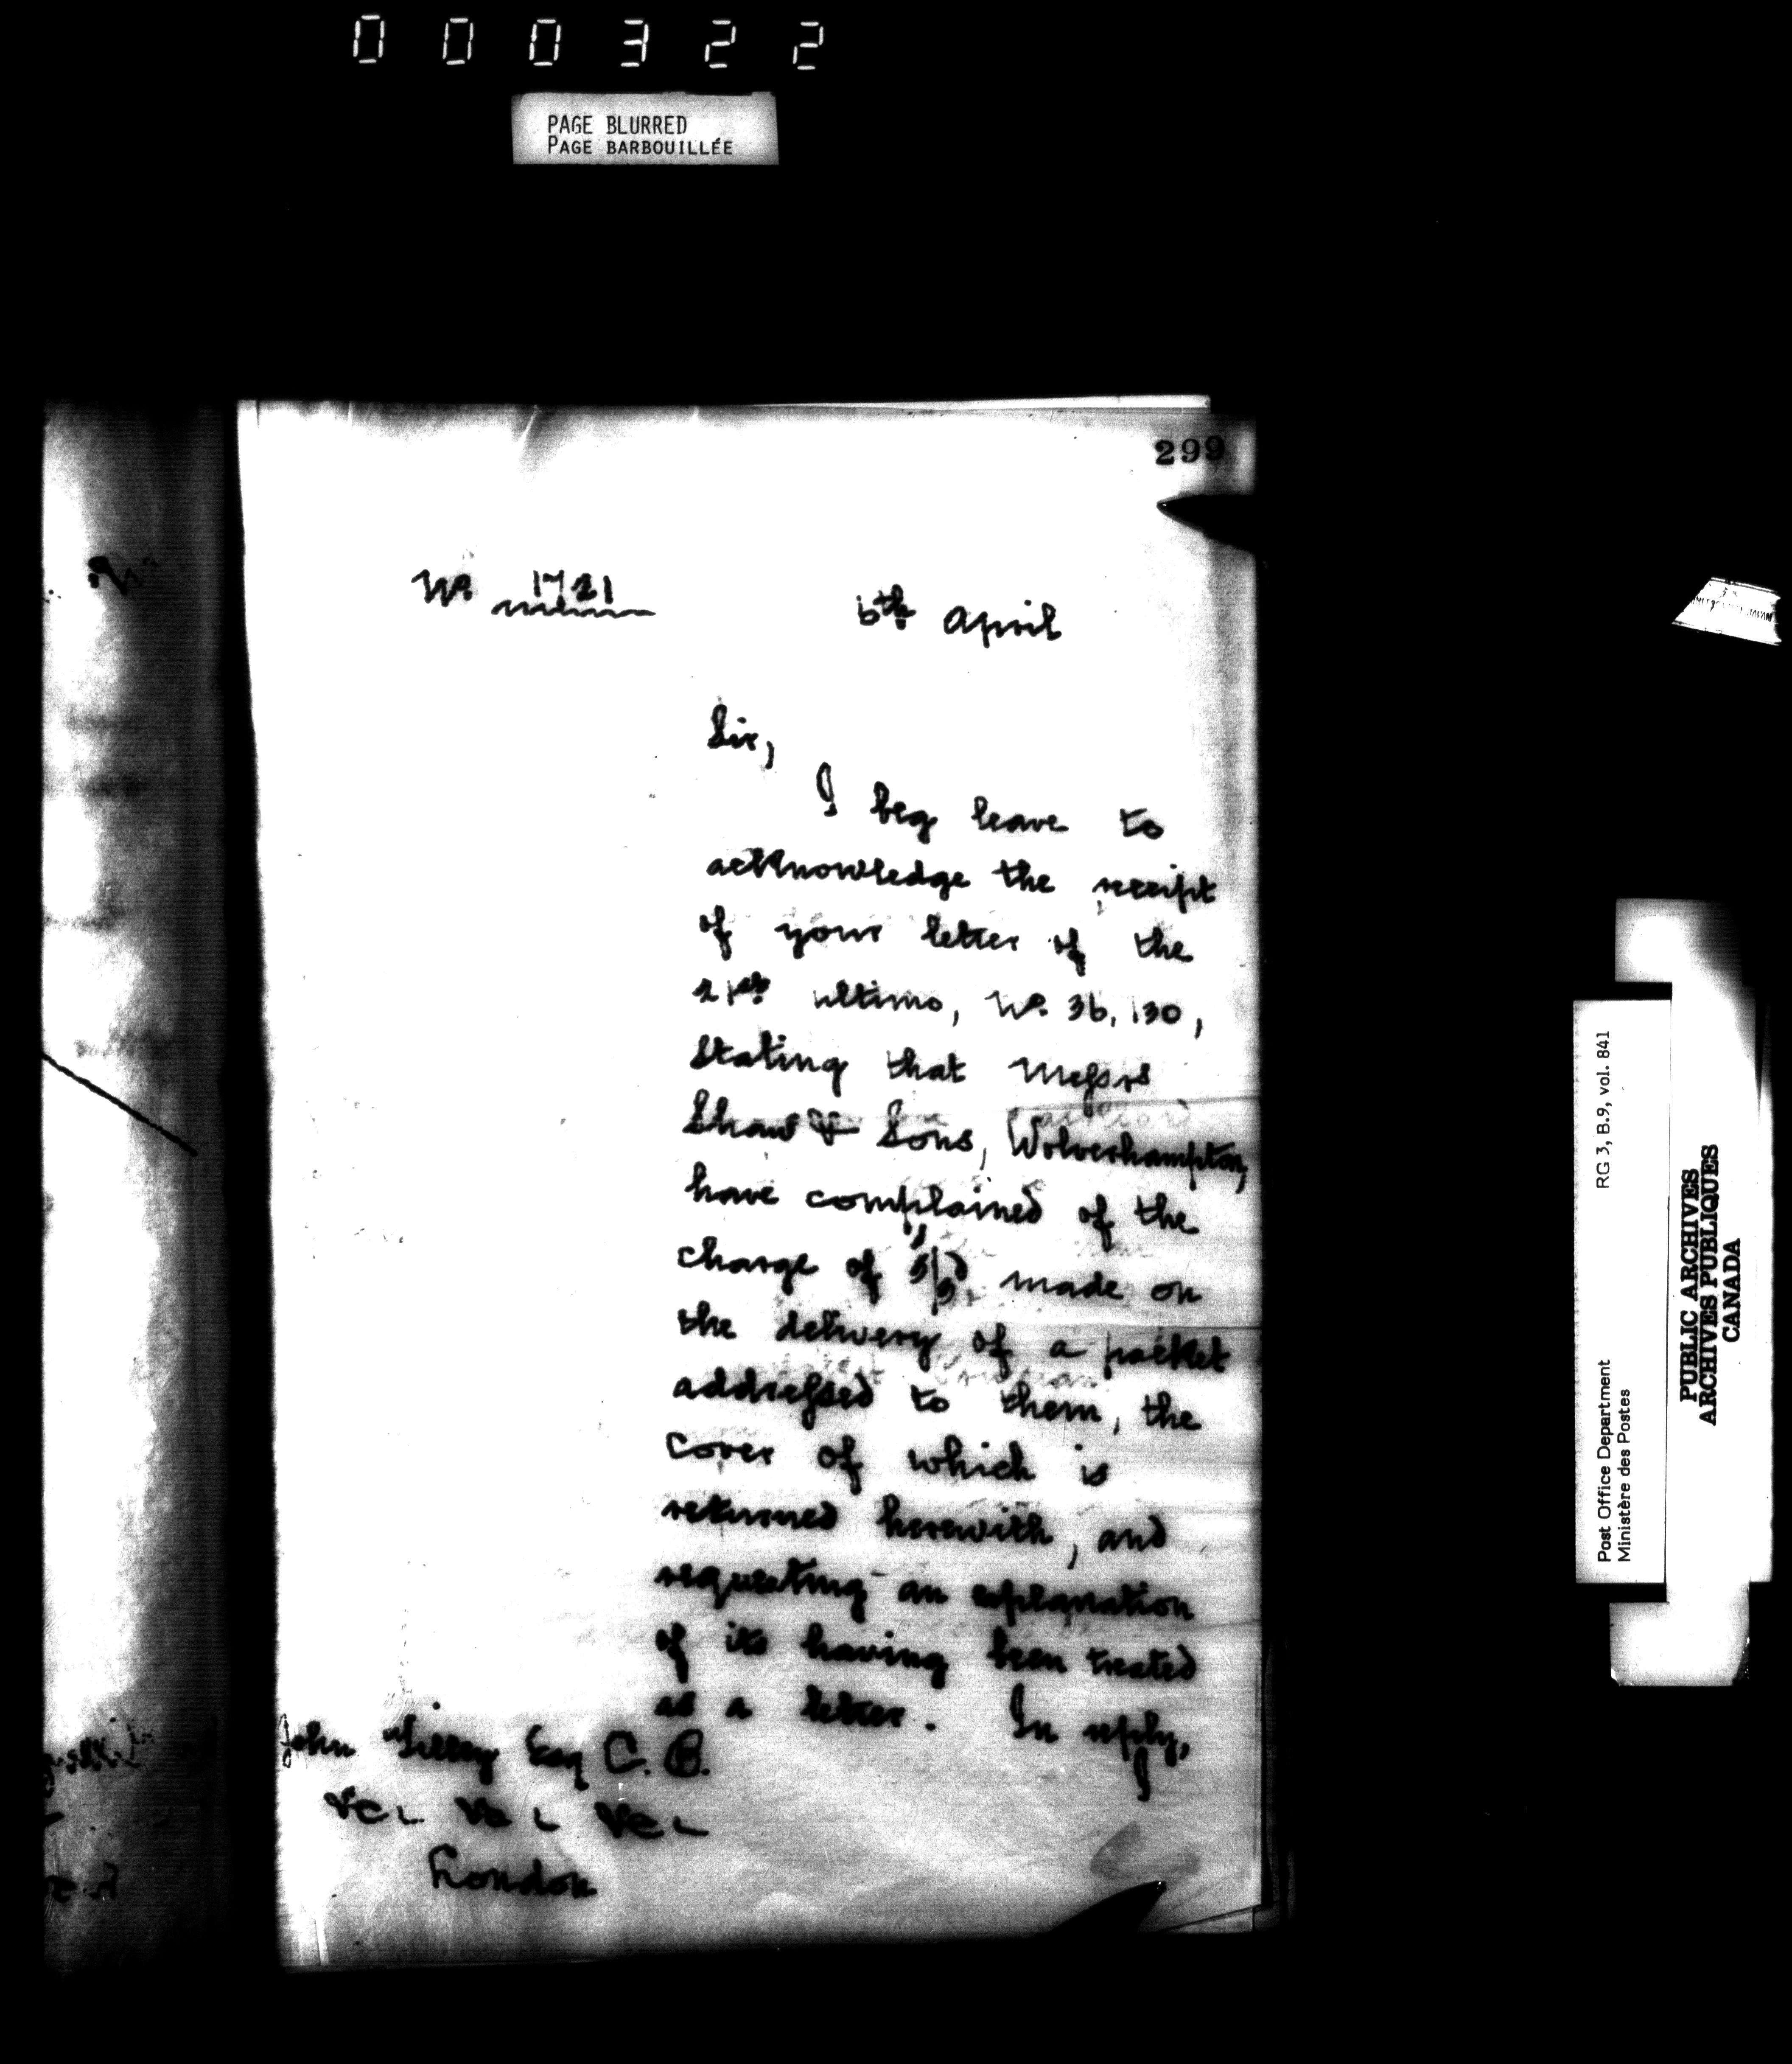 000322
PAGE BLURRED
PAGE BARBOUILLÉE
299
No. 1721
6th April
Sir,
I beg leave to
acknowledge the receipt
of your letter of the
21st ultimo, No. 36,130,
stating that Messrs
Shaw & Sons, Wolverhampton,
have complained of the
charge of made on
the delivery of a packet
addressed to them, the
cover of which is
returned herewith, and
requesting an explanation
of its having been treated
as a letter. In reply,
I
John Tilley Esq C. B.
&c. &c. &c.
London
RG 3, B.9, vol. 841
Post Office Department
Ministère des Postes
PUBLIC ARCHIVES
ARCHIVES PUBLIQUES
CANADA